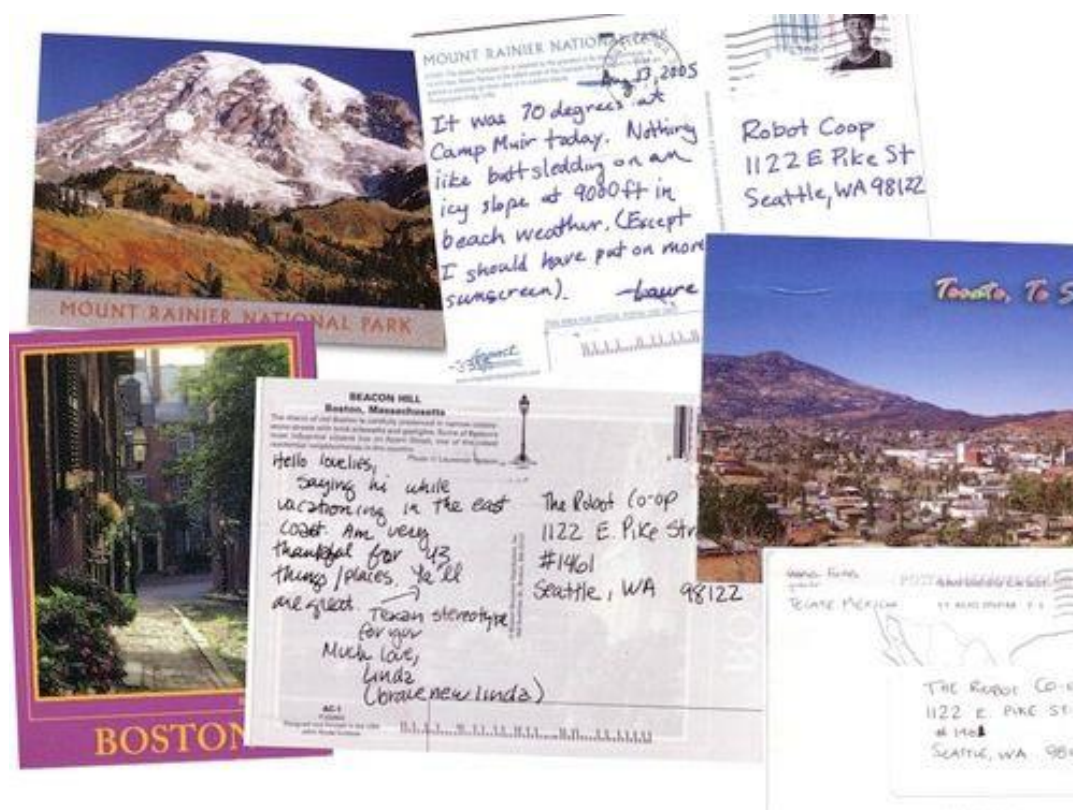 MOUNT RAINIER NATIONAL PARK
MOUNT RAINIER NATIONAL PARK
Aug 13, 2005
It was 70 degrees at
Camp Muir today. Nothing
like butt sledding on an
icy slope at 9000 ft in
beach weather. (Except
I should have put on more
sunscreen). —Laure
Robot Coop
1122 E Pike St
Seattle, WA 98122
BOSTON
BEACON HILL
Boston, Massachusetts
Hello lovelies,
Saying hi while
vacationing in the east
coast. Am very
thankful for 43
things/places. Ya'll
are great.
Texan stereotype
for you
Much love,
Linda
(brave new linda)
AC-1
The Robot Co-op
1122 E. Pike Str
#1461
Seattle, WA 98122
Tecate,
TECATE MEXICO
THE ROBOT CO-
1122 E. PIKE ST.
# 1461
SEATTLE, WA 98